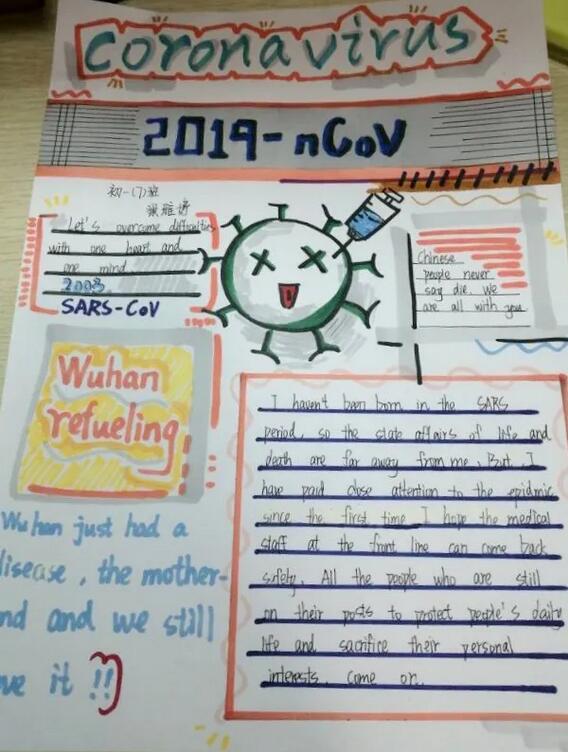 coronavirus
2019-nCoV
初一(7)班
Let's overcome difficulties
with one heart and
one mind
2003
SARS-CoV
Chinese
people never
say die. We
are all with you
Wuhan
refueling
I haven't been born in the SARS
period, so the state affairs of life and
death are far away from me. But, I
have paid close attention to the epidmic
since the first time I hope the medical
staff at the front line can come back
safety. All the people who are still
on their posts to protect people's daily
life and sacrifice their personal
interests. come on.
Wuhan just had a
disease, the mother-
nd and we still
ve it !!